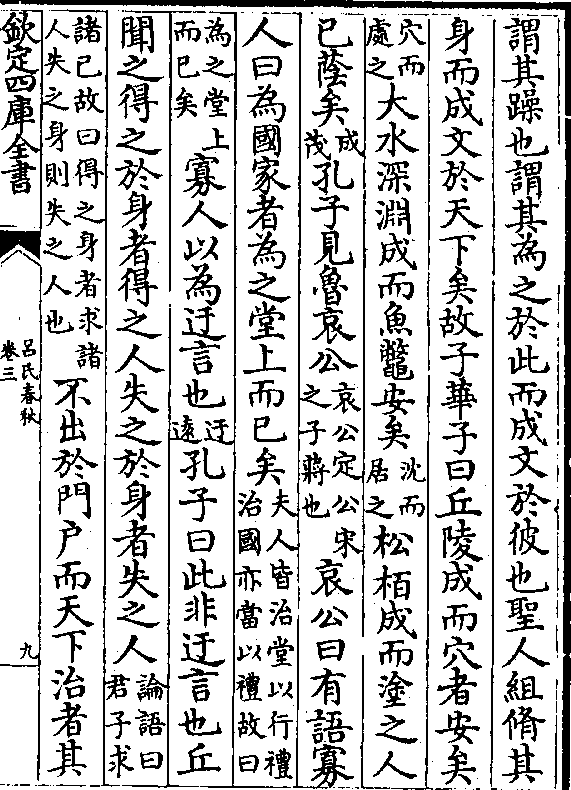 謂其躁也謂其為之於此而成文於彼也聖人組脩其
身而成文於天下矣故子華子曰丘陵成而穴者安矣
穴而處之大水深淵成而魚鼈安矣沈而居之松栢成而塗之人
已蔭矣成茂孔子見魯哀公哀公定公宋之子蔣也哀公曰有語寡
人曰為國家者為之堂上而已矣夫人皆治堂以行禮治國亦當以禮故曰
為之堂上而已矣寡人以為迂言也迂遠孔子曰此非迂言也丘
聞之得之於身者得之人失之於身者失之人論語曰君子求
諸已故曰得之身者求諸人失之身則失之人也不出於門户而天下治者其
欽定四庫全書
吕氏春秋
卷三
九